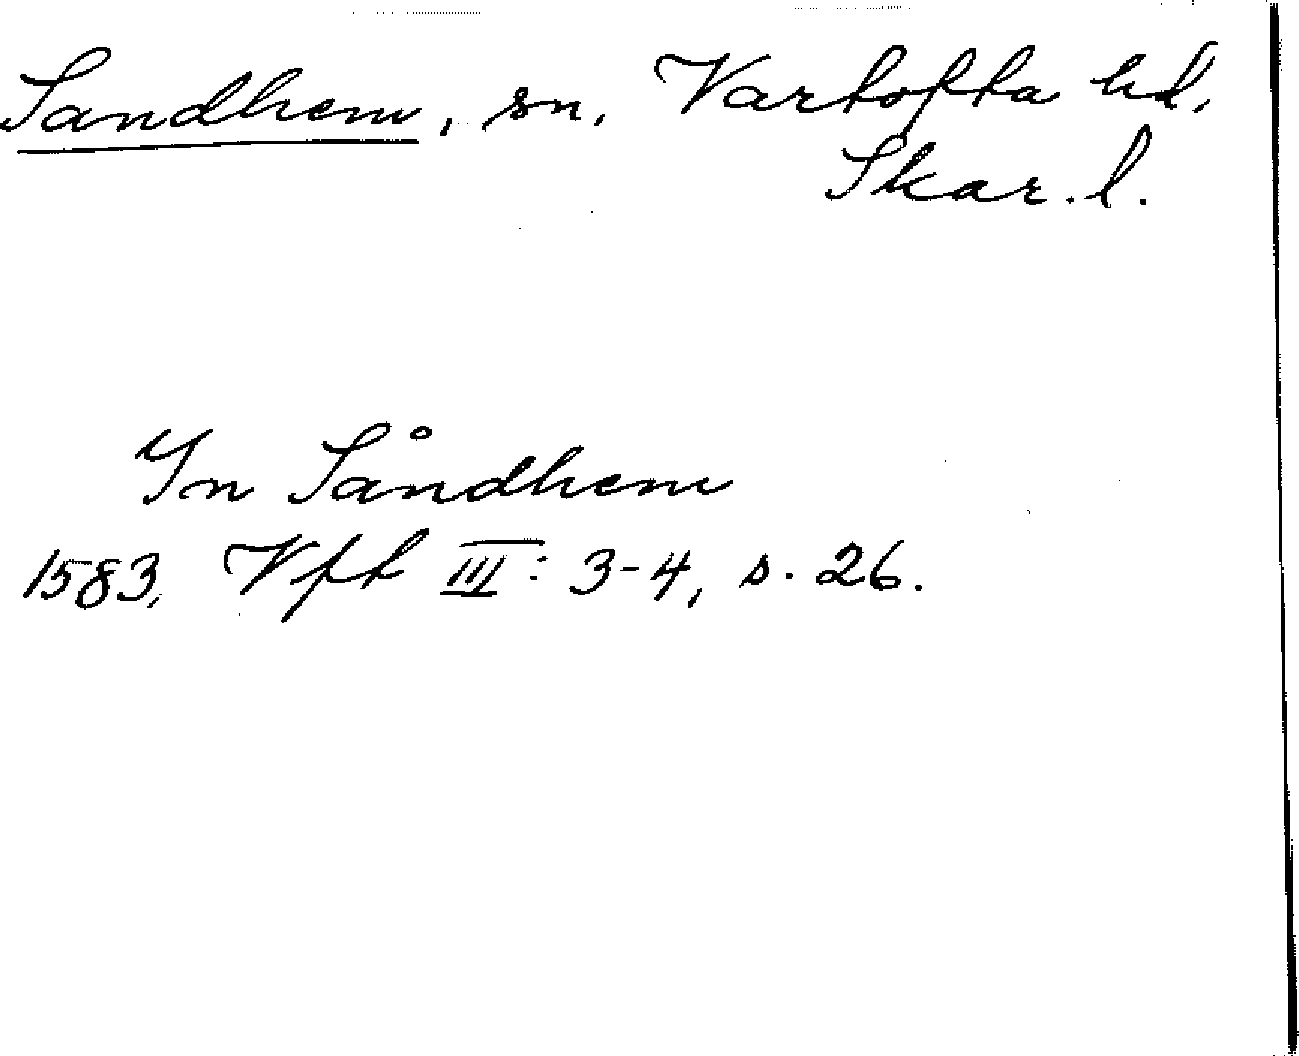 Sandhem, sn, Vartofta hd,
Skar. l.
In Såndhem
1583, Vft III: 3-4, s. 26.